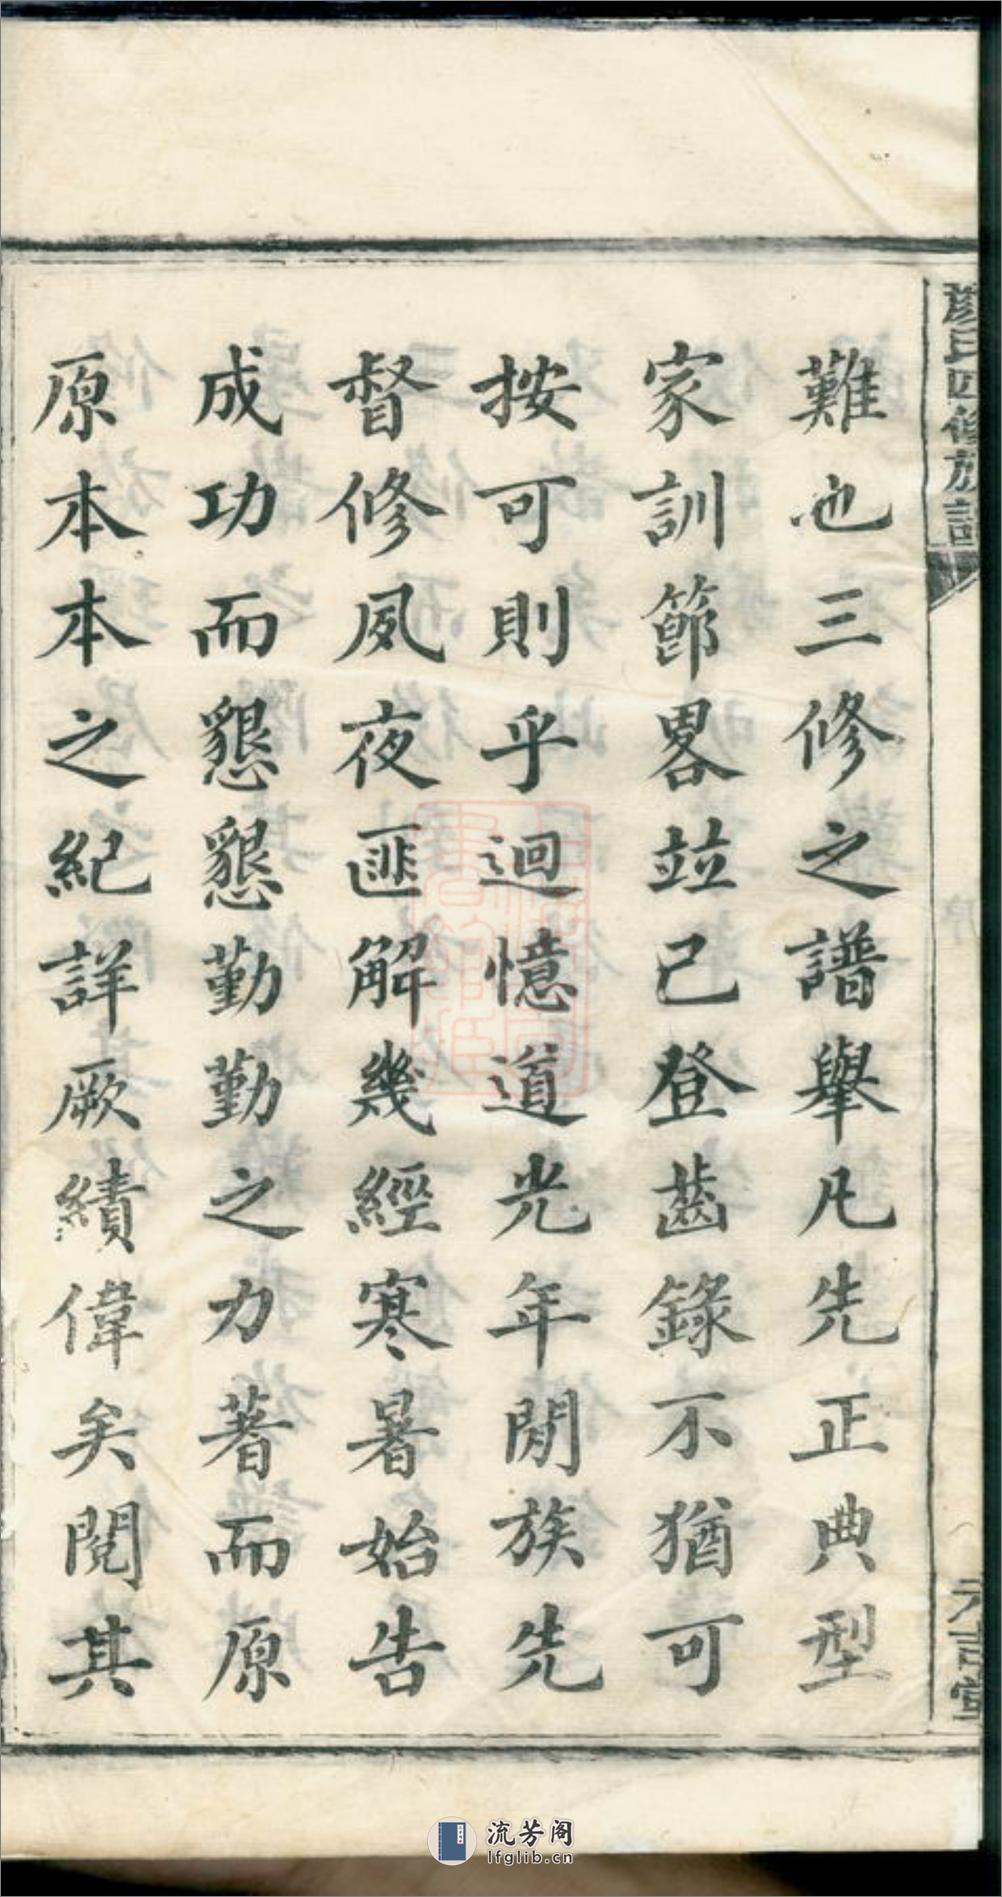 顏氏四修族譜
序
元吉堂
難也三修之譜舉凡先正典型
家訓節畧竝已登齒錄不猶可
按可則乎迴憶道光年閒族先
督修夙夜匪解幾經寒暑始告
成功而懇懇勤勤之力著而原
原本本之紀詳厥績偉矣閱其
流芳阁
lfglib.cn